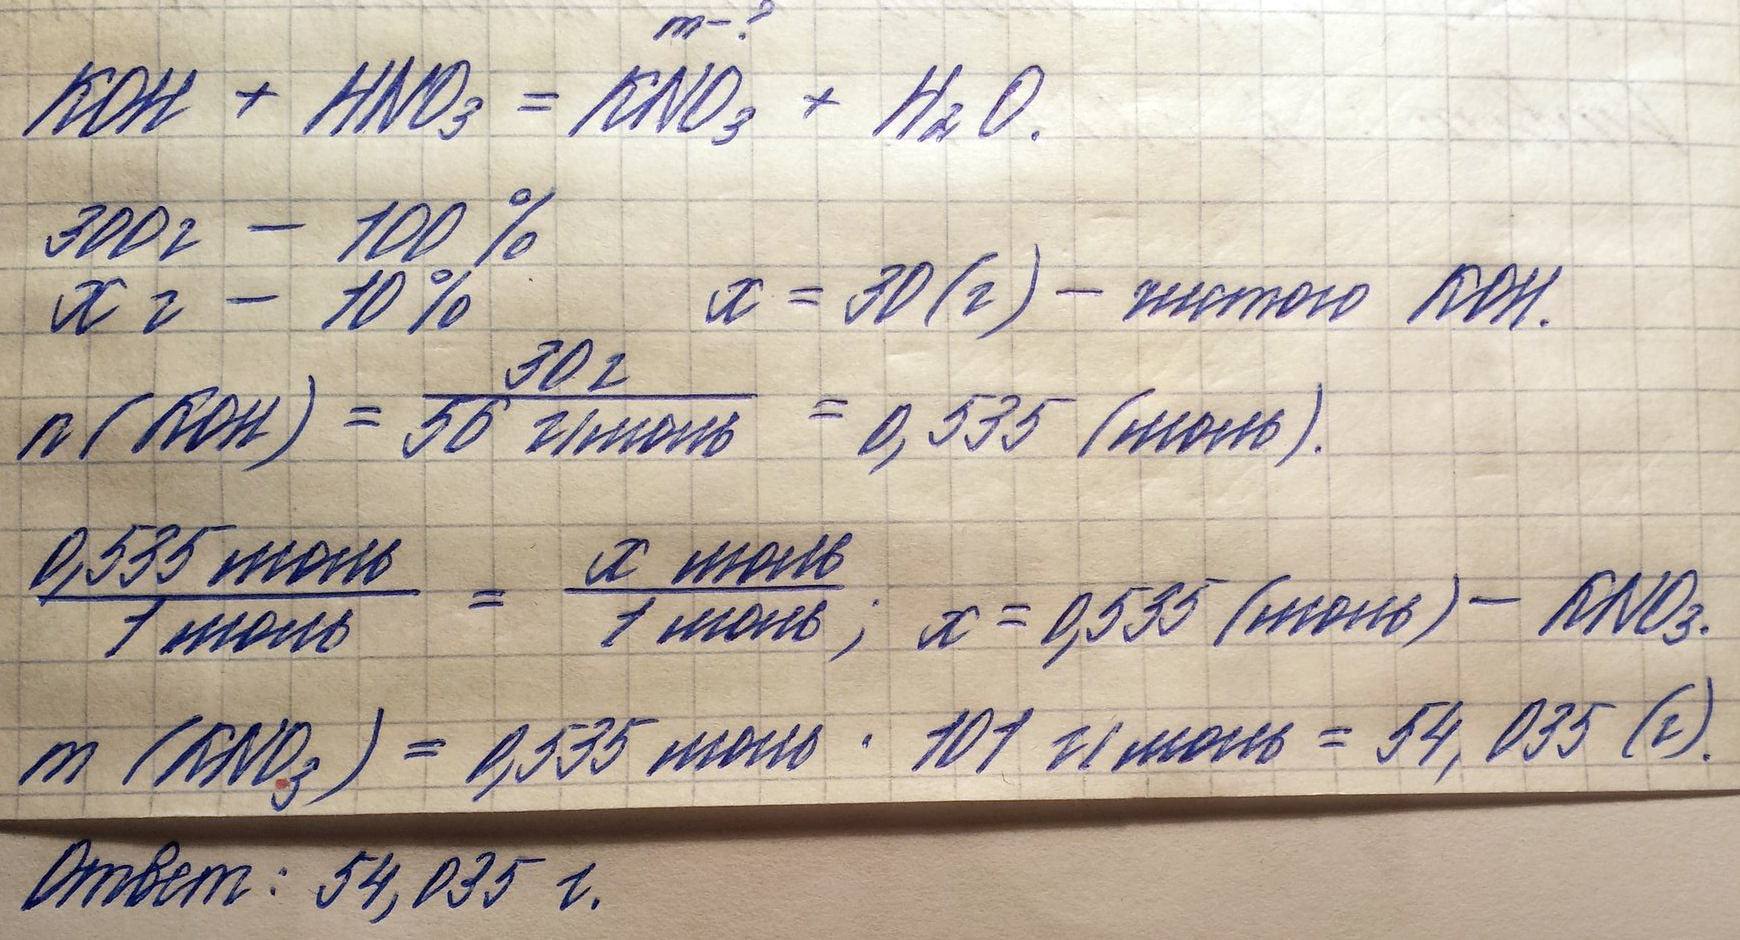 m-?
KOH + HNO₃ = KNO₃ + H₂O.
300г - 100 %
x г - 10 % x = 30 (г) - чистого KOH.
n (KOH) = 30 г / 56 г/моль = 0,535 (моль).
0,535 моль / 1 моль = x моль / 1 моль ; x = 0,535 (моль) - KNO₃.
m (KNO₃) = 0,535 моль · 101 г/моль = 54,035 (г).
Ответ: 54,035 г.